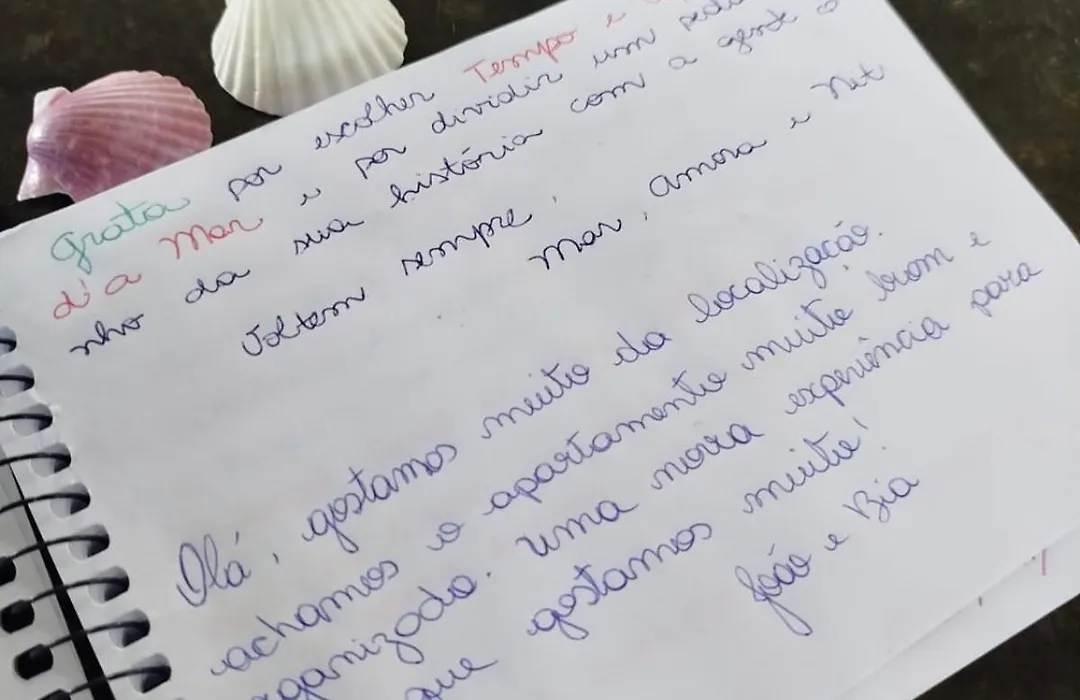 Grata por escolher Tempo e
d'a Mar e por dividir um pedi
nho da sua história com a gente
Voltem sempre,
Mar, amora e Net
Olá, gostamos muito da localização.
achamos o apartamento muito bom e
organizado. uma nova experiência para
que gostamos muito!
João e Bia